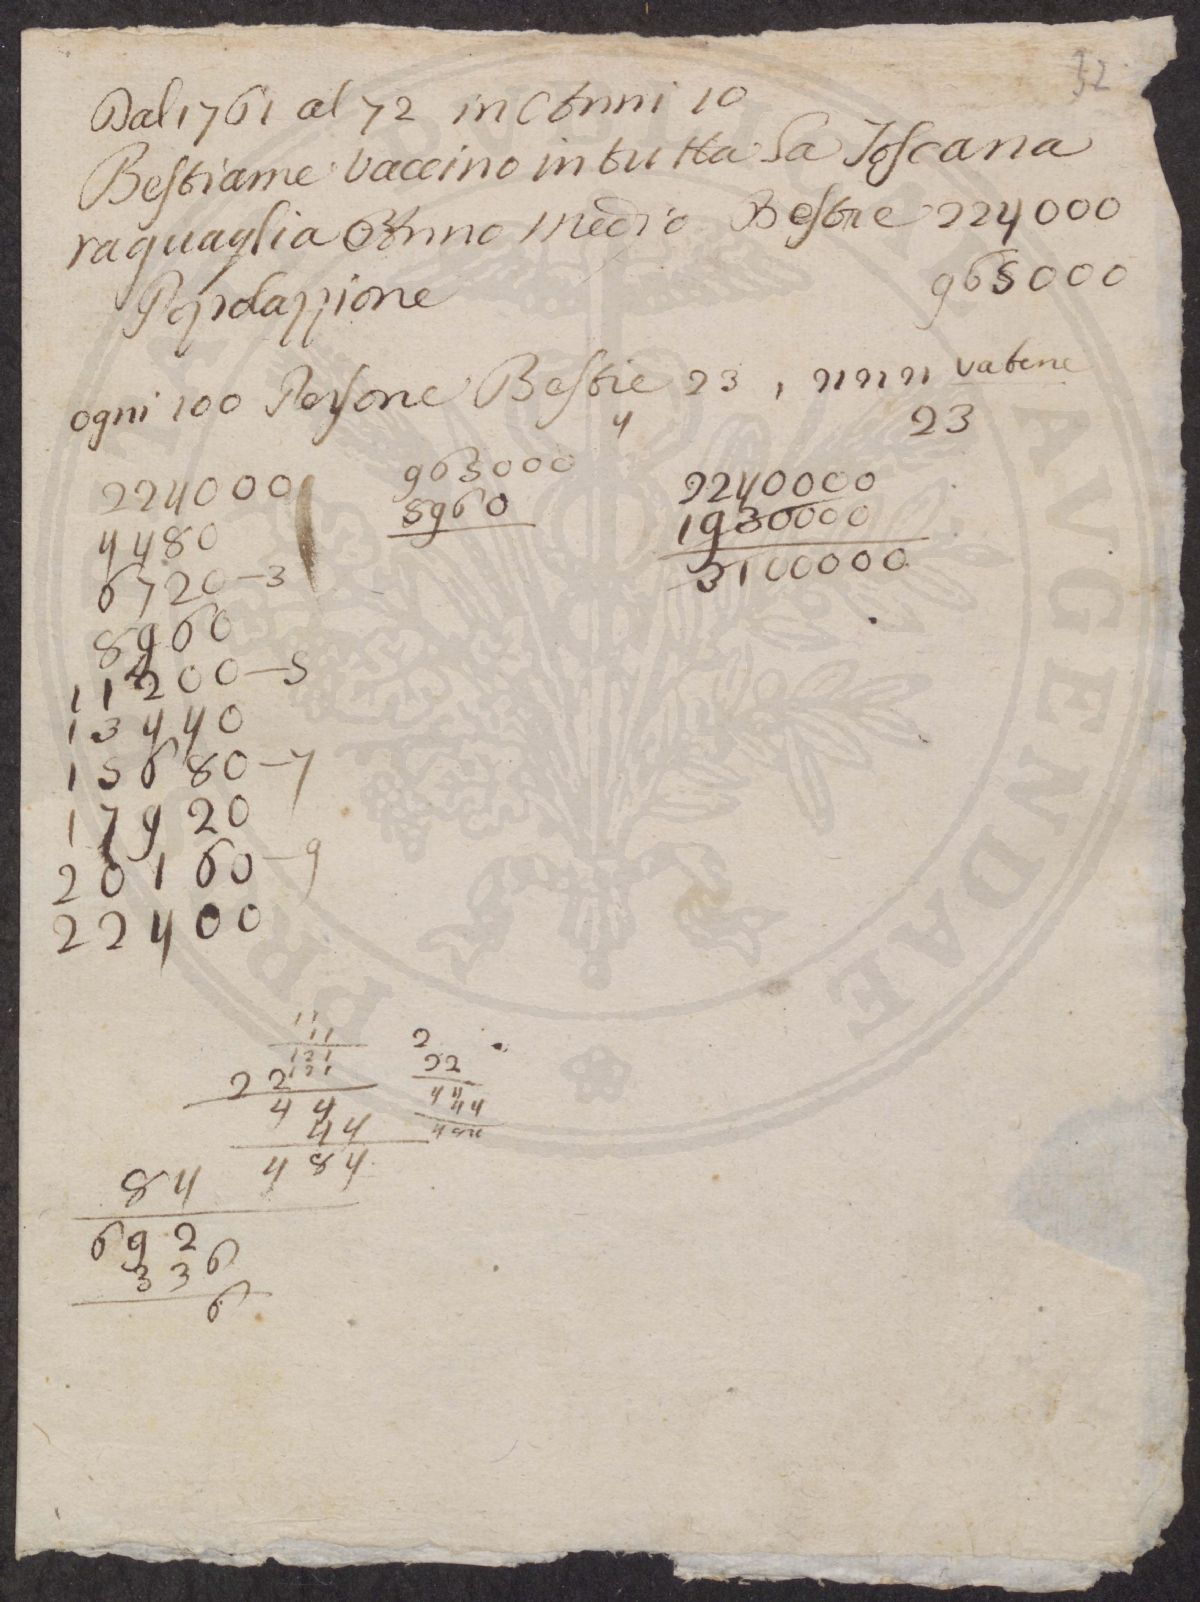 32
Dal 1761 al 72 in Anni 10
Bestiame vaccino in tutta la Toscana
raguaglia Anno Medio Bestie 224000
Popolazzione 965000
ogni 100 Persone Bestie 23, 212121 va bene
4 23
224000 965000 2240000
4480 8960 1930000
6720-3 3100000
8960
11200-5
13440
15680-7
17920
20160-9
22400
11
11
121 2
22 121 22
44 44
44 44
484
84
692
336
6
PRO AVGENDAE